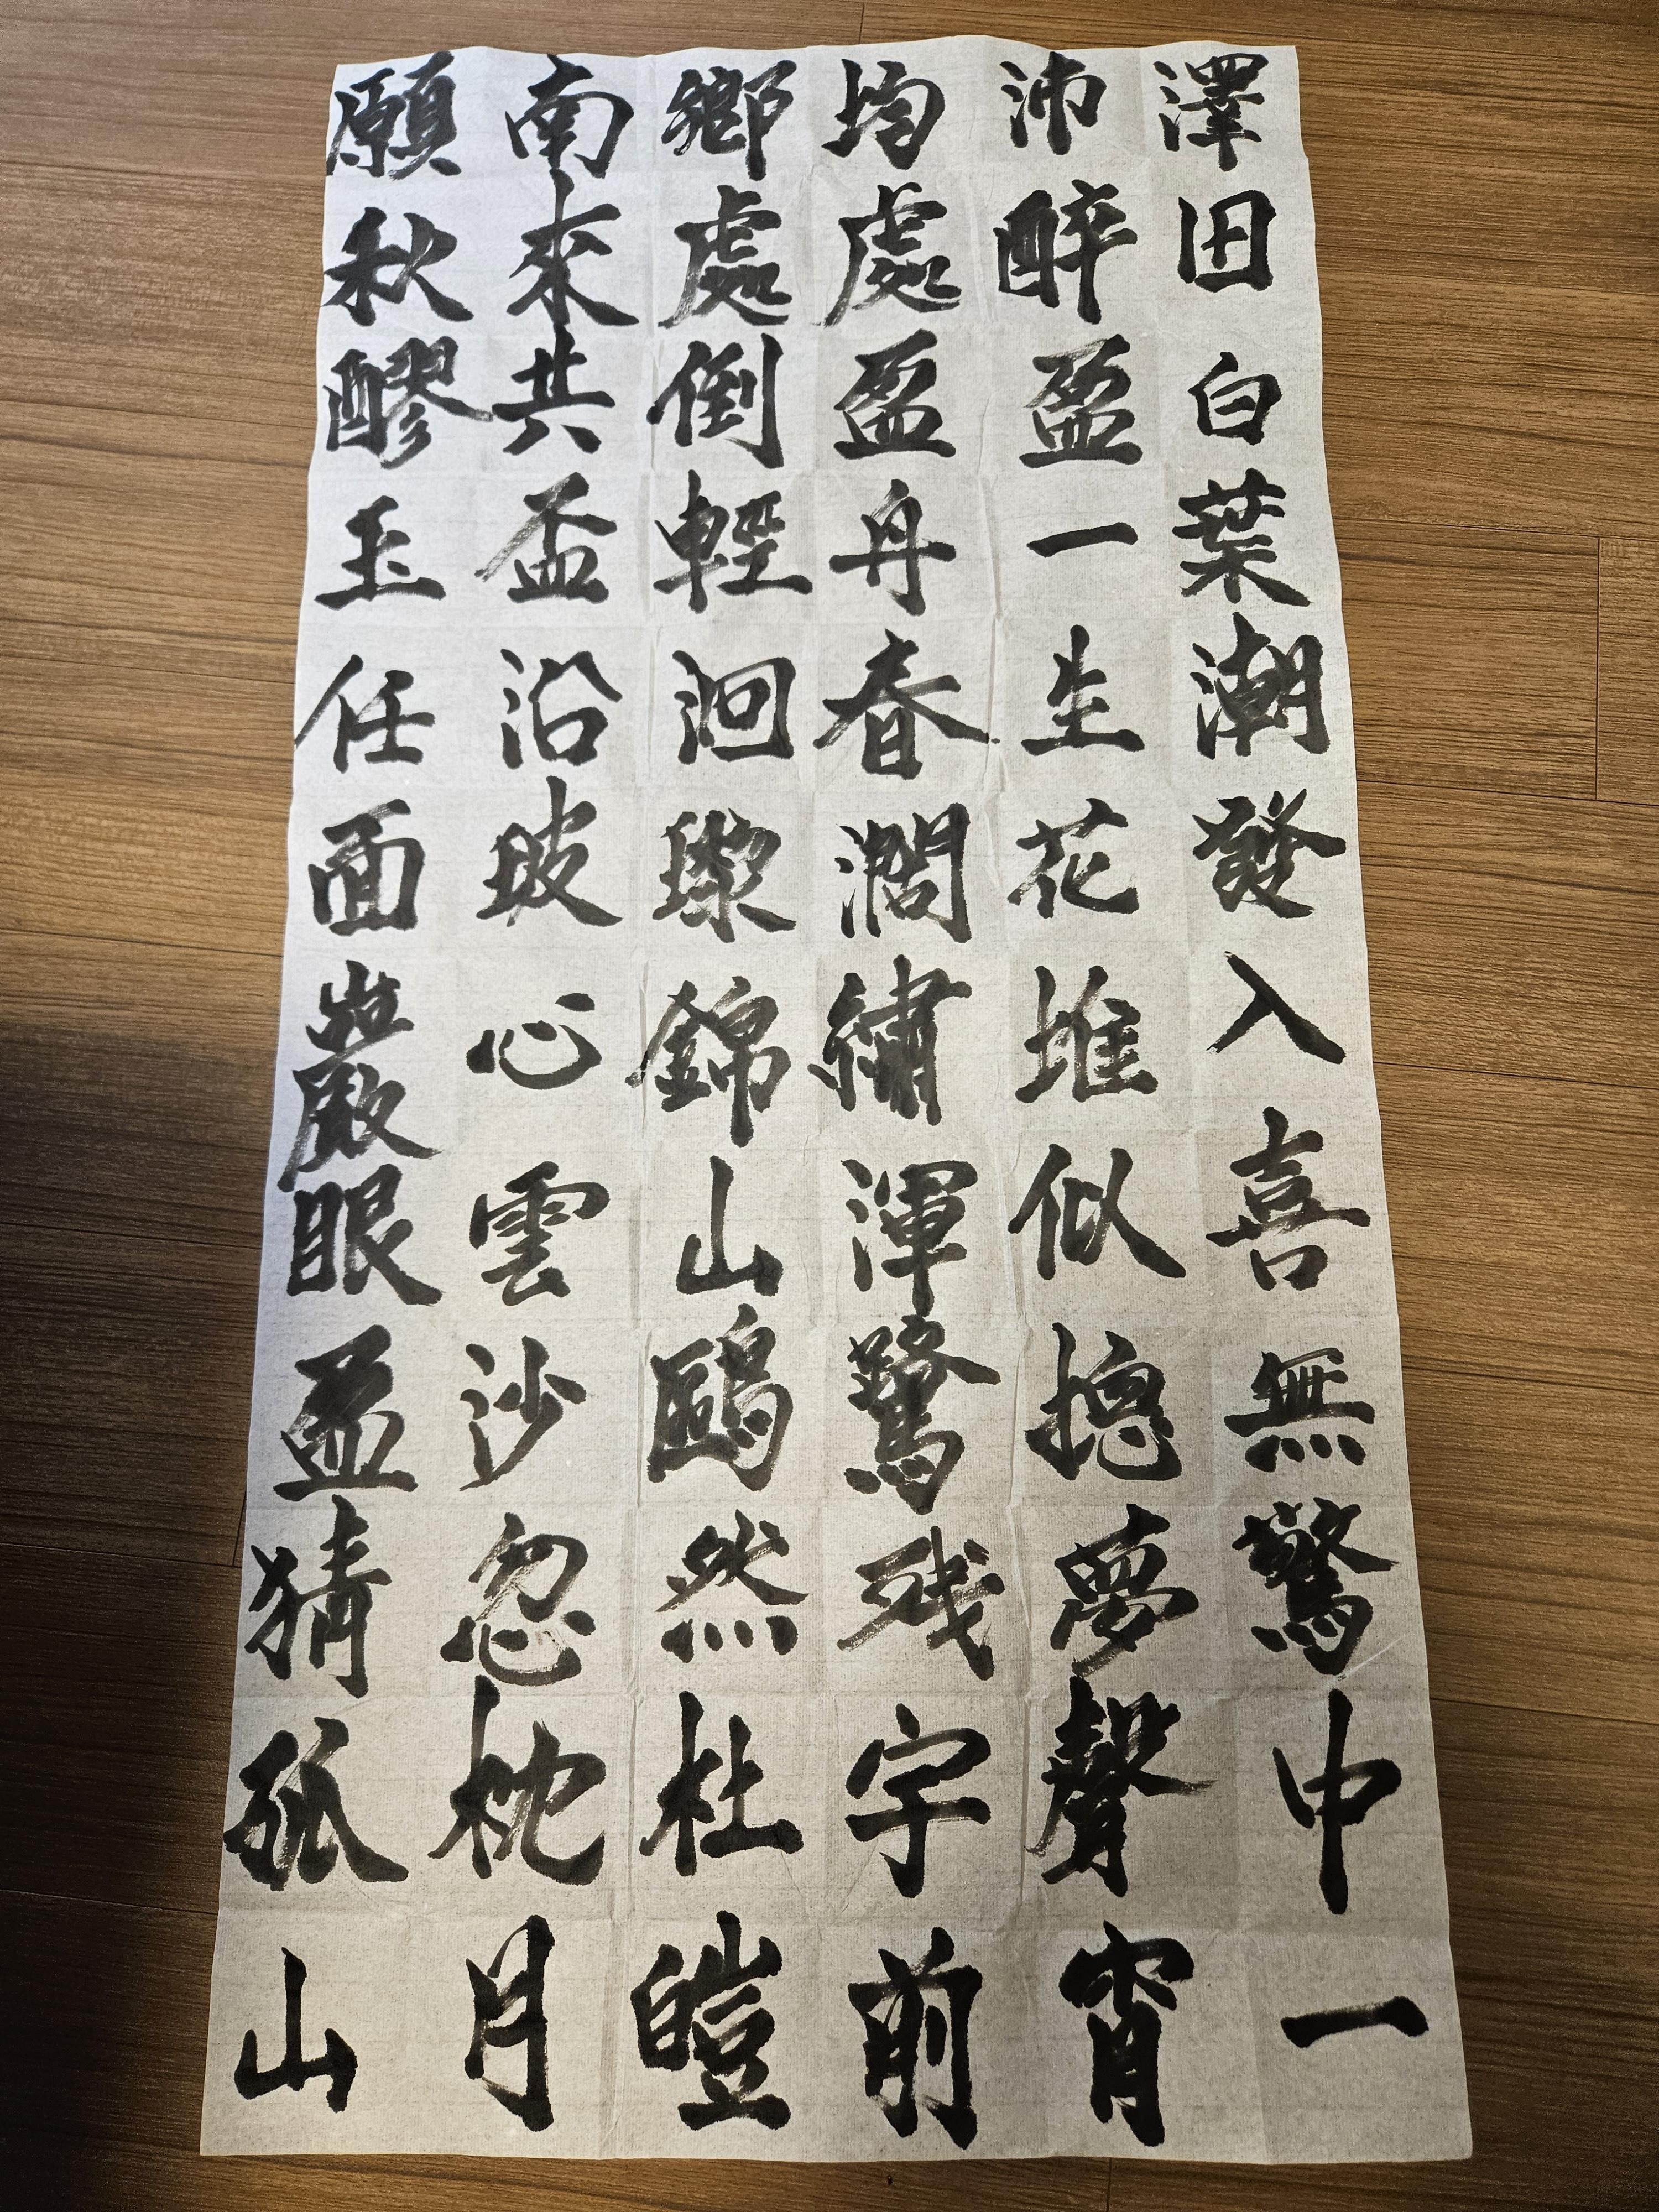 澤田白葉潮發入喜無驚中一
沛醉盈一生花堆似摠夢聲宵
均處盈舟春澗繡渾驚殘字前
鄉處倒輕洄璨錦山鷗然杜皚
南來共盃沿玻心雲沙忽枕月
願秋醪玉任面巖眼盈猜孤山